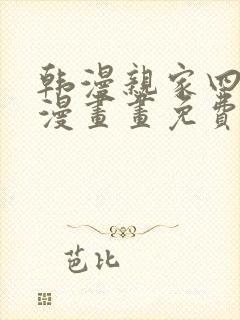 韩漫親家四
漫畫畫免費
芭比